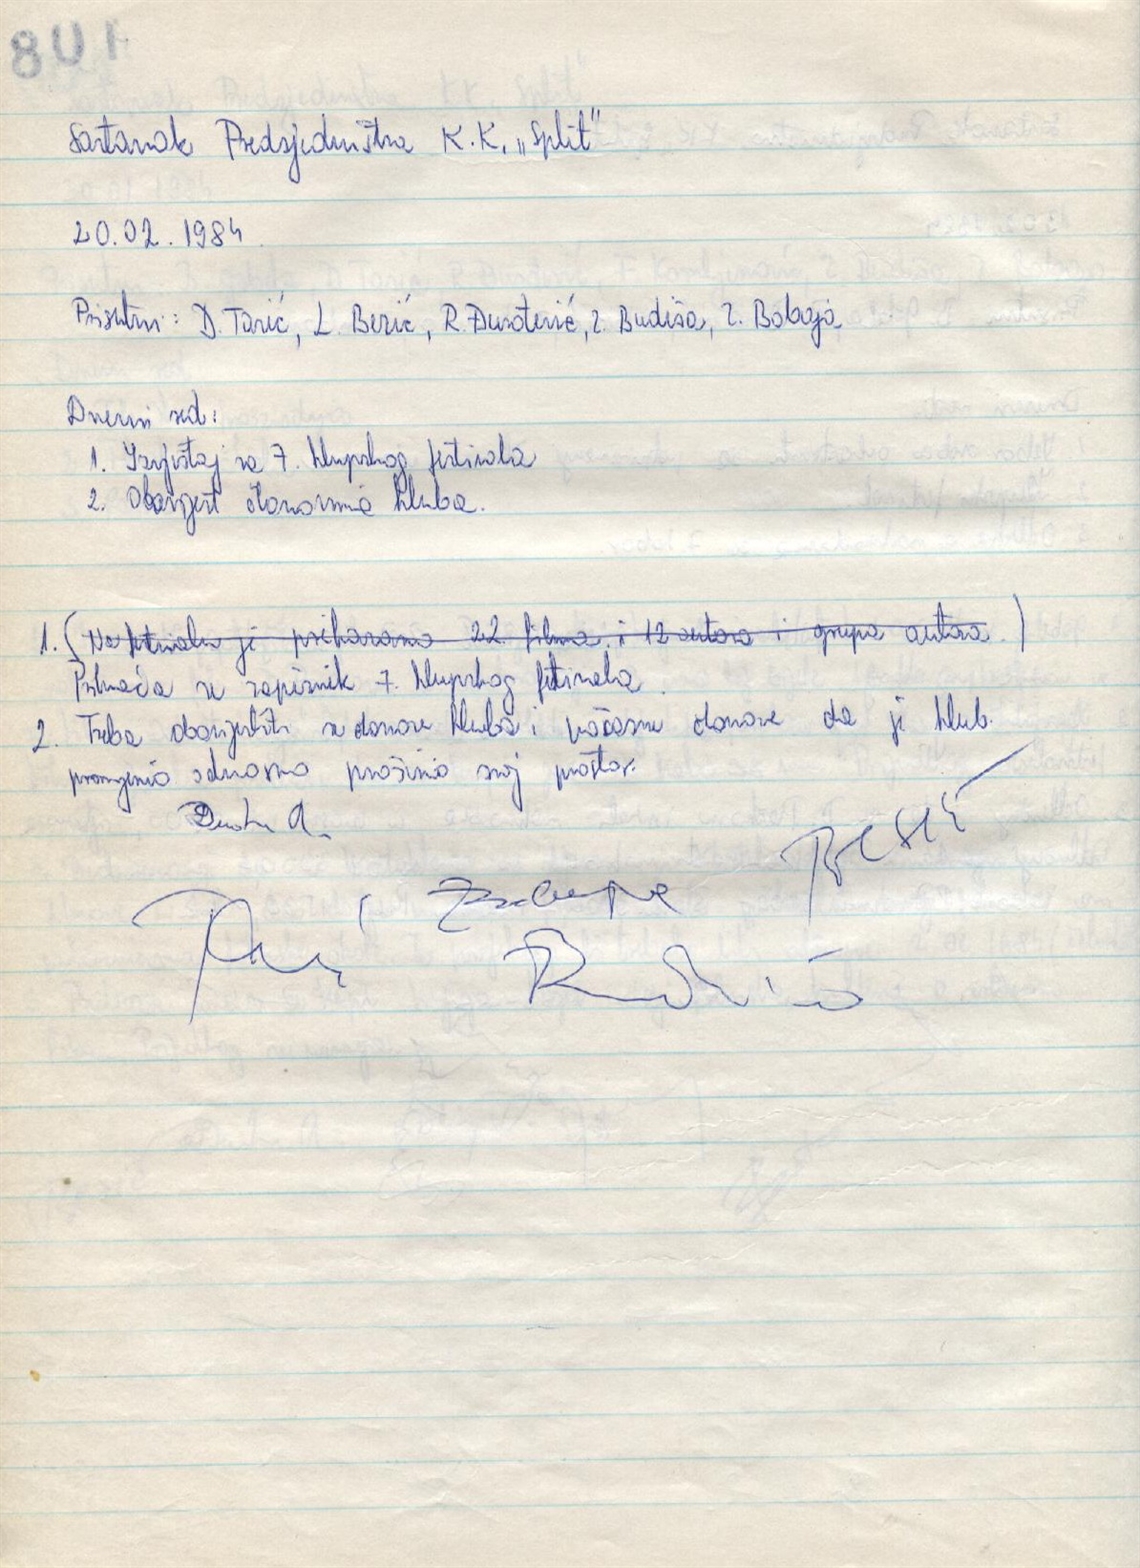 Sastanak Predsjedništva K.K. „Split"
20.02.1984
Prisutni: D. Tarić, L. Bezić, R. Durotević, Z. Budiša, Z. Boboja
Dnevni red:
1. Izvještaj sa 7. klupskog festivala
2. Obavijest članovima kluba.
1. (Na festivalu je prikazano 22 filma i 12 autora i grupa autora.)
Prihvaća se zapisnik 7. klupskog festivala.
2. Treba obavijestiti sve članove kluba i počasne članove da je klub
promijenio odnosno proširio svoj prostor.